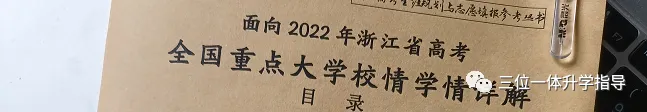 生涯规划与志愿填报参考丛书
面向2022年浙江省高考
全国重点大学校情学情详解
目 录
三位一体升学指导